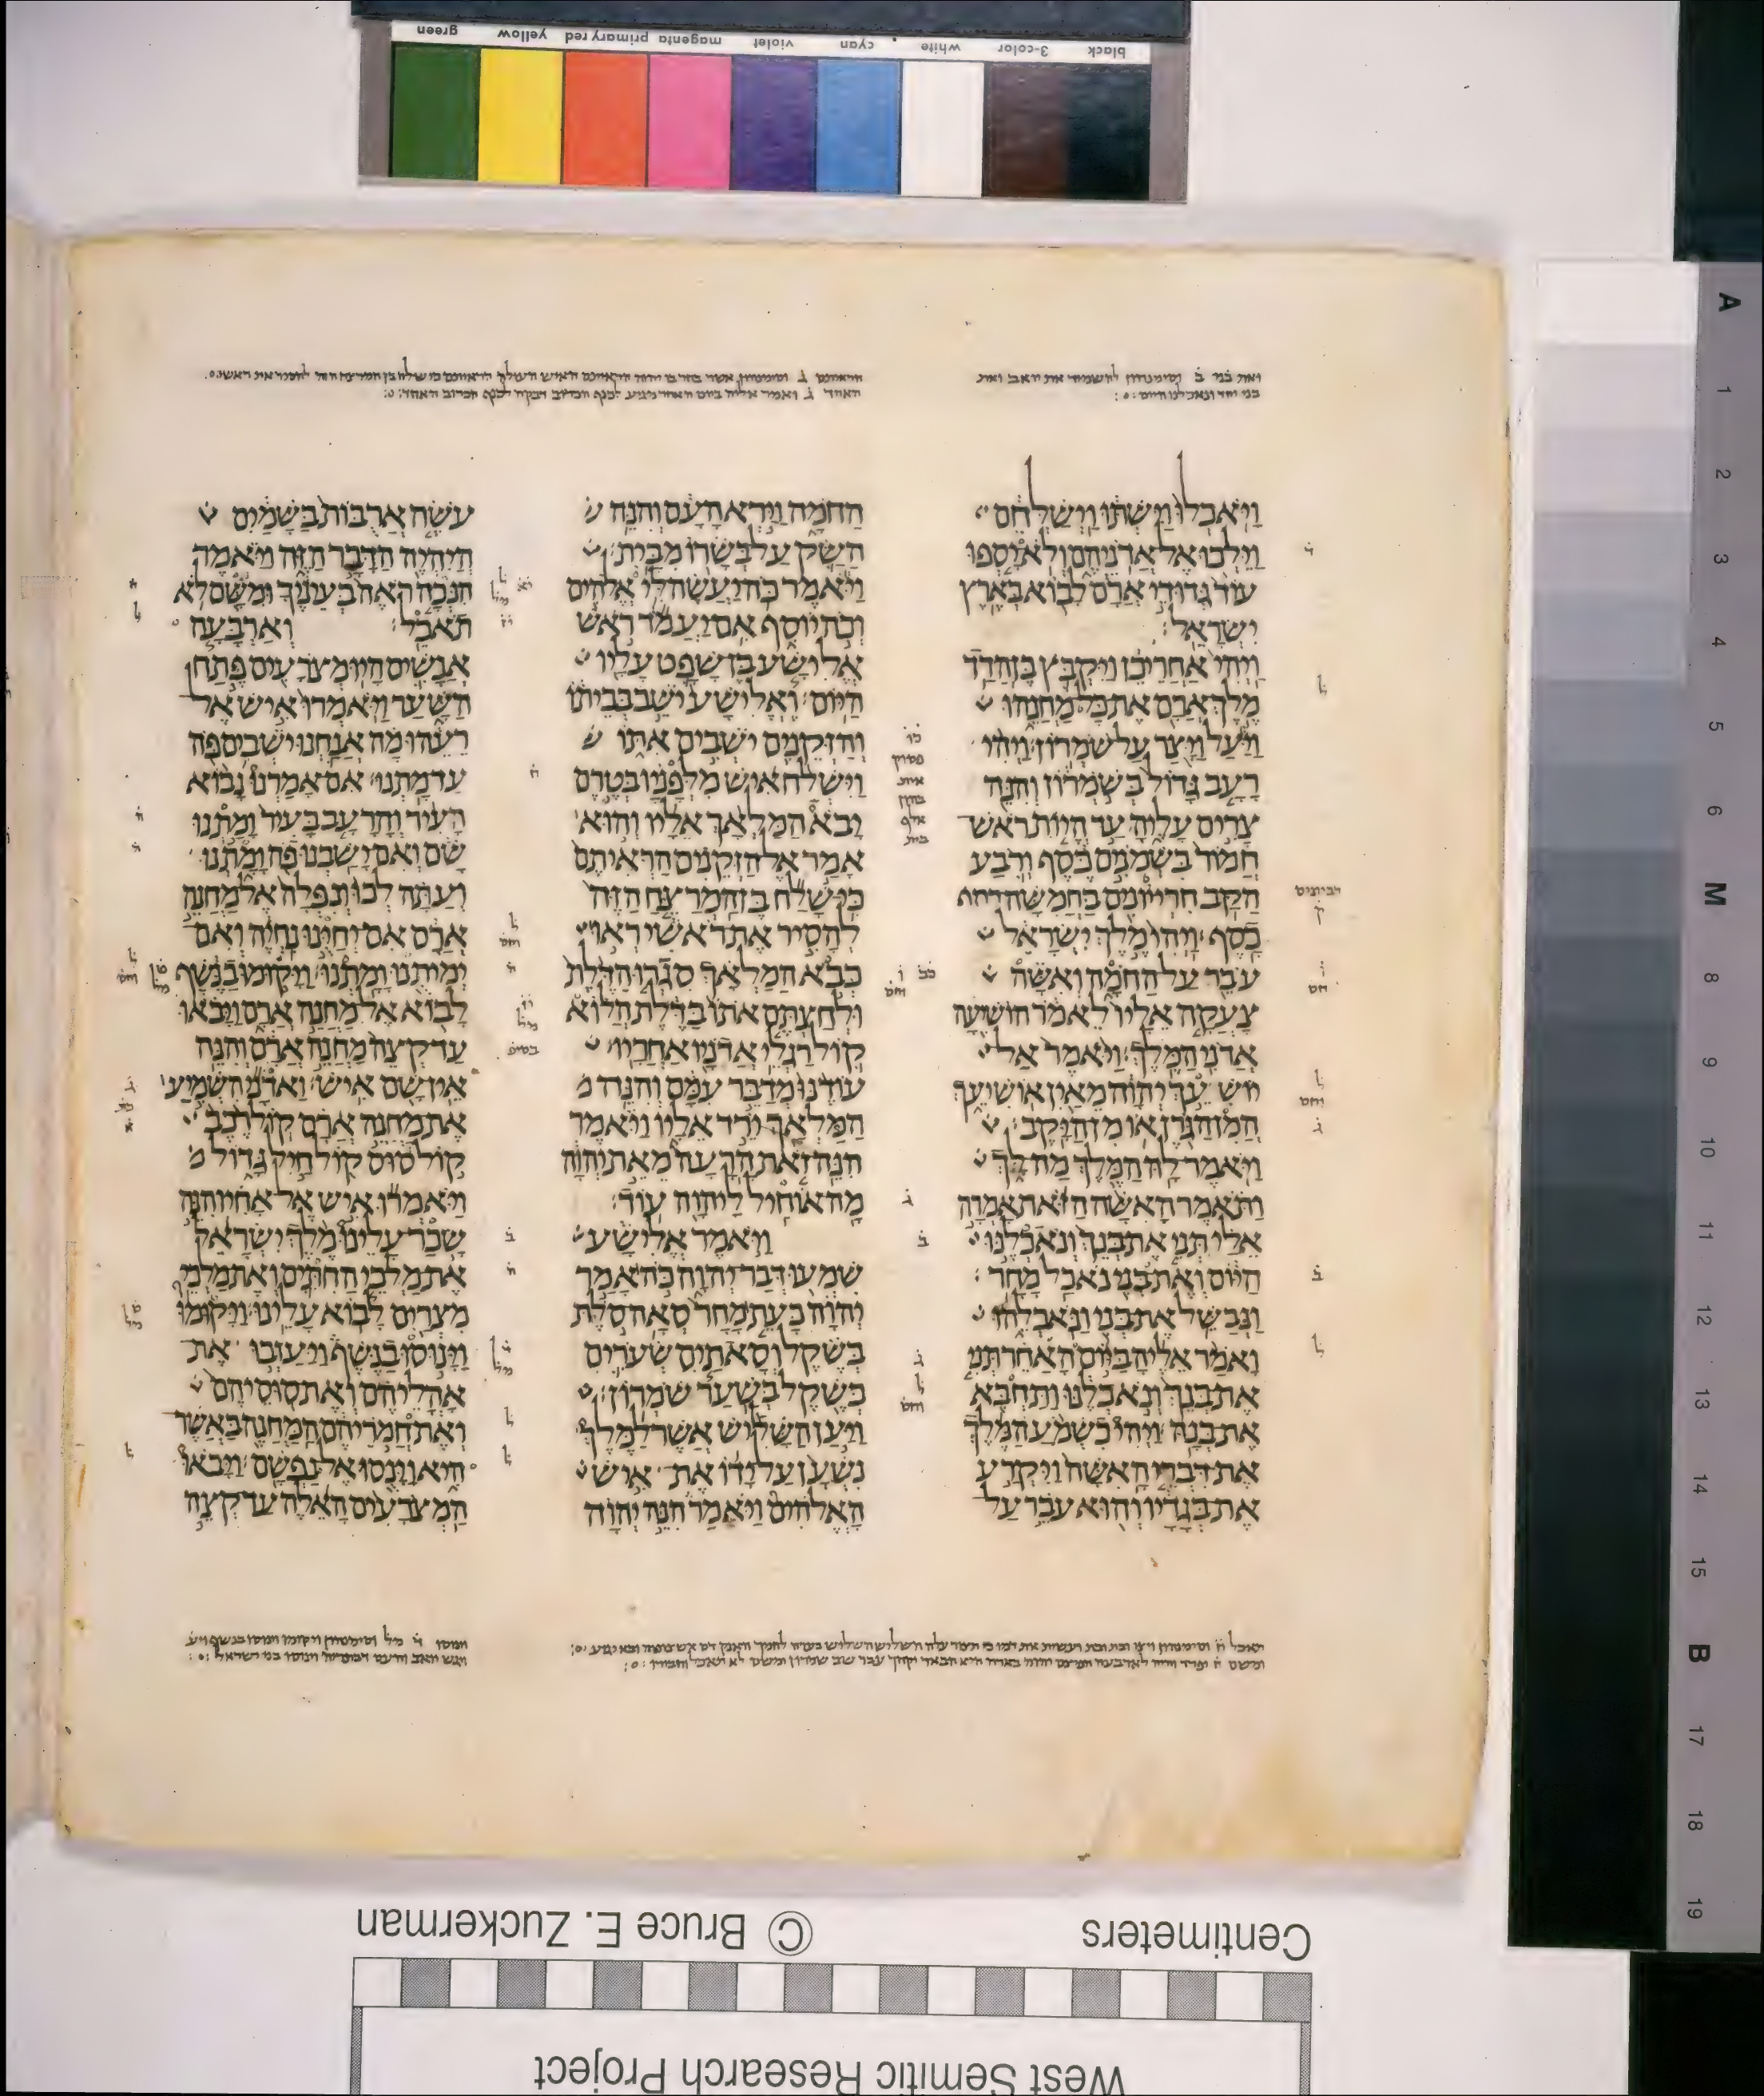 black 3-color white cyan violet magenta primary red yellow green
ואת בני ב וסימנהון להשמיד את יואב ואת
בני יחד ונאכלנו היום
ויאכלו וישתו וישלחם
וילכו אל אדניהם ולא יספו
עוד גדודי ארם לבוא בארץ
ישראל׃
ויהי אחרי כן ויקבץ בן הדד
מלך ארם את כל מחנהו
ויעל ויצר על שמרון׃ ויהי
רעב גדול בשמרון והנה
צרים עליה עד היות ראש
חמור בשמנים כסף ורבע
הקב חריונים בחמשה
כסף׃ ויהי מלך ישראל
עבר על החמה ואשה
צעקה אליו לאמר הושיעה
אדני המלך׃ ויאמר אל
יושעך יהוה מאין אושיעך
המן הגרן או מן היקב׃
ויאמר לה המלך מה לך
ותאמר האשה הזאת אמרה
אלי תני את בנך ונאכלנו
היום ואת בני נאכל מחר׃
ונבשל את בני ונאכלהו
ואמר אליה ביום האחר תני
את בנך ונאכלנו ותחבא
את בנה׃ ויהי כשמע המלך
את דברי האשה ויקרע
את בגדיו והוא עבר על
החמה וירא העם והנה
השק על בשרו מבית׃
ויאמר כה יעשה לי אלהים
וכה יוסף אם יעמד ראש
אלישע בן שפט עליו
היום׃ ואלישע ישב בביתו
והזקנים ישבים אתו
וישלח איש מלפניו בטרם
יבא המלאך אליו והוא
אמר אל הזקנים הראיתם
כי שלח בן המרצח הזה
להסיר את ראשי ראו
כבא המלאך סגרו הדלת
ולחצתם אתו בדלת הלוא
קול רגלי אדניו אחריו׃
עודנו מדבר עמם והנה
המלאך ירד אליו ויאמר
הנה זאת הרעה מאת יהוה
מה אוחיל ליהוה עוד׃
ויאמר אלישע
שמעו דבר יהוה כה אמר
יהוה כעת מחר סאה סלת
בשקל וסאתים שערים
בשקל בשער שמרון׃
ויען השליש אשר למלך
נשען על ידו את איש
האלהים ויאמר הנה יהוה
עשה ארבות בשמים
היהיה הדבר הזה ויאמר
הנכה ראה בעיניך ומשם לא
תאכל׃ וארבעה
אנשים היו מצרעים פתח
השער ויאמרו איש אל
רעהו מה אנחנו ישבים פה
עד מתנו׃ אם אמרנו נבוא
העיר והרעב בעיר ומתנו
שם ואם ישבנו פה ומתנו
ועתה לכו ונפלה אל מחנה
ארם אם יחינו נחיה ואם
ימיתנו ומתנו׃ ויקומו בנשף
לבוא אל מחנה ארם ויבאו
עד קצה מחנה ארם והנה
אין שם איש׃ ואדני השמיע
את מחנה ארם קול רכב
קול סוס קול חיל גדול
ויאמרו איש אל אחיו הנה
שכר עלינו מלך ישראל
את מלכי החתים ואת מלכי
מצרים לבוא עלינו׃ ויקומו
וינוסו בנשף ויעזבו את
אהליהם ואת סוסיהם
ואת חמריהם המחנה כאשר
היא וינסו אל נפשם׃ ויבאו
המצרעים האלה עד קצה
Centimeters © Bruce E. Zuckerman
West Semitic Research Project
A 1 2 3 4 5 6 M 8 9 10 11 12 13 14 15 B 17 18 19